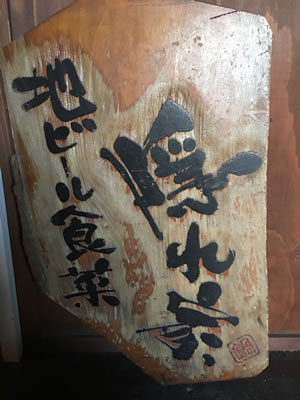 隠れ家
地ビール食菜